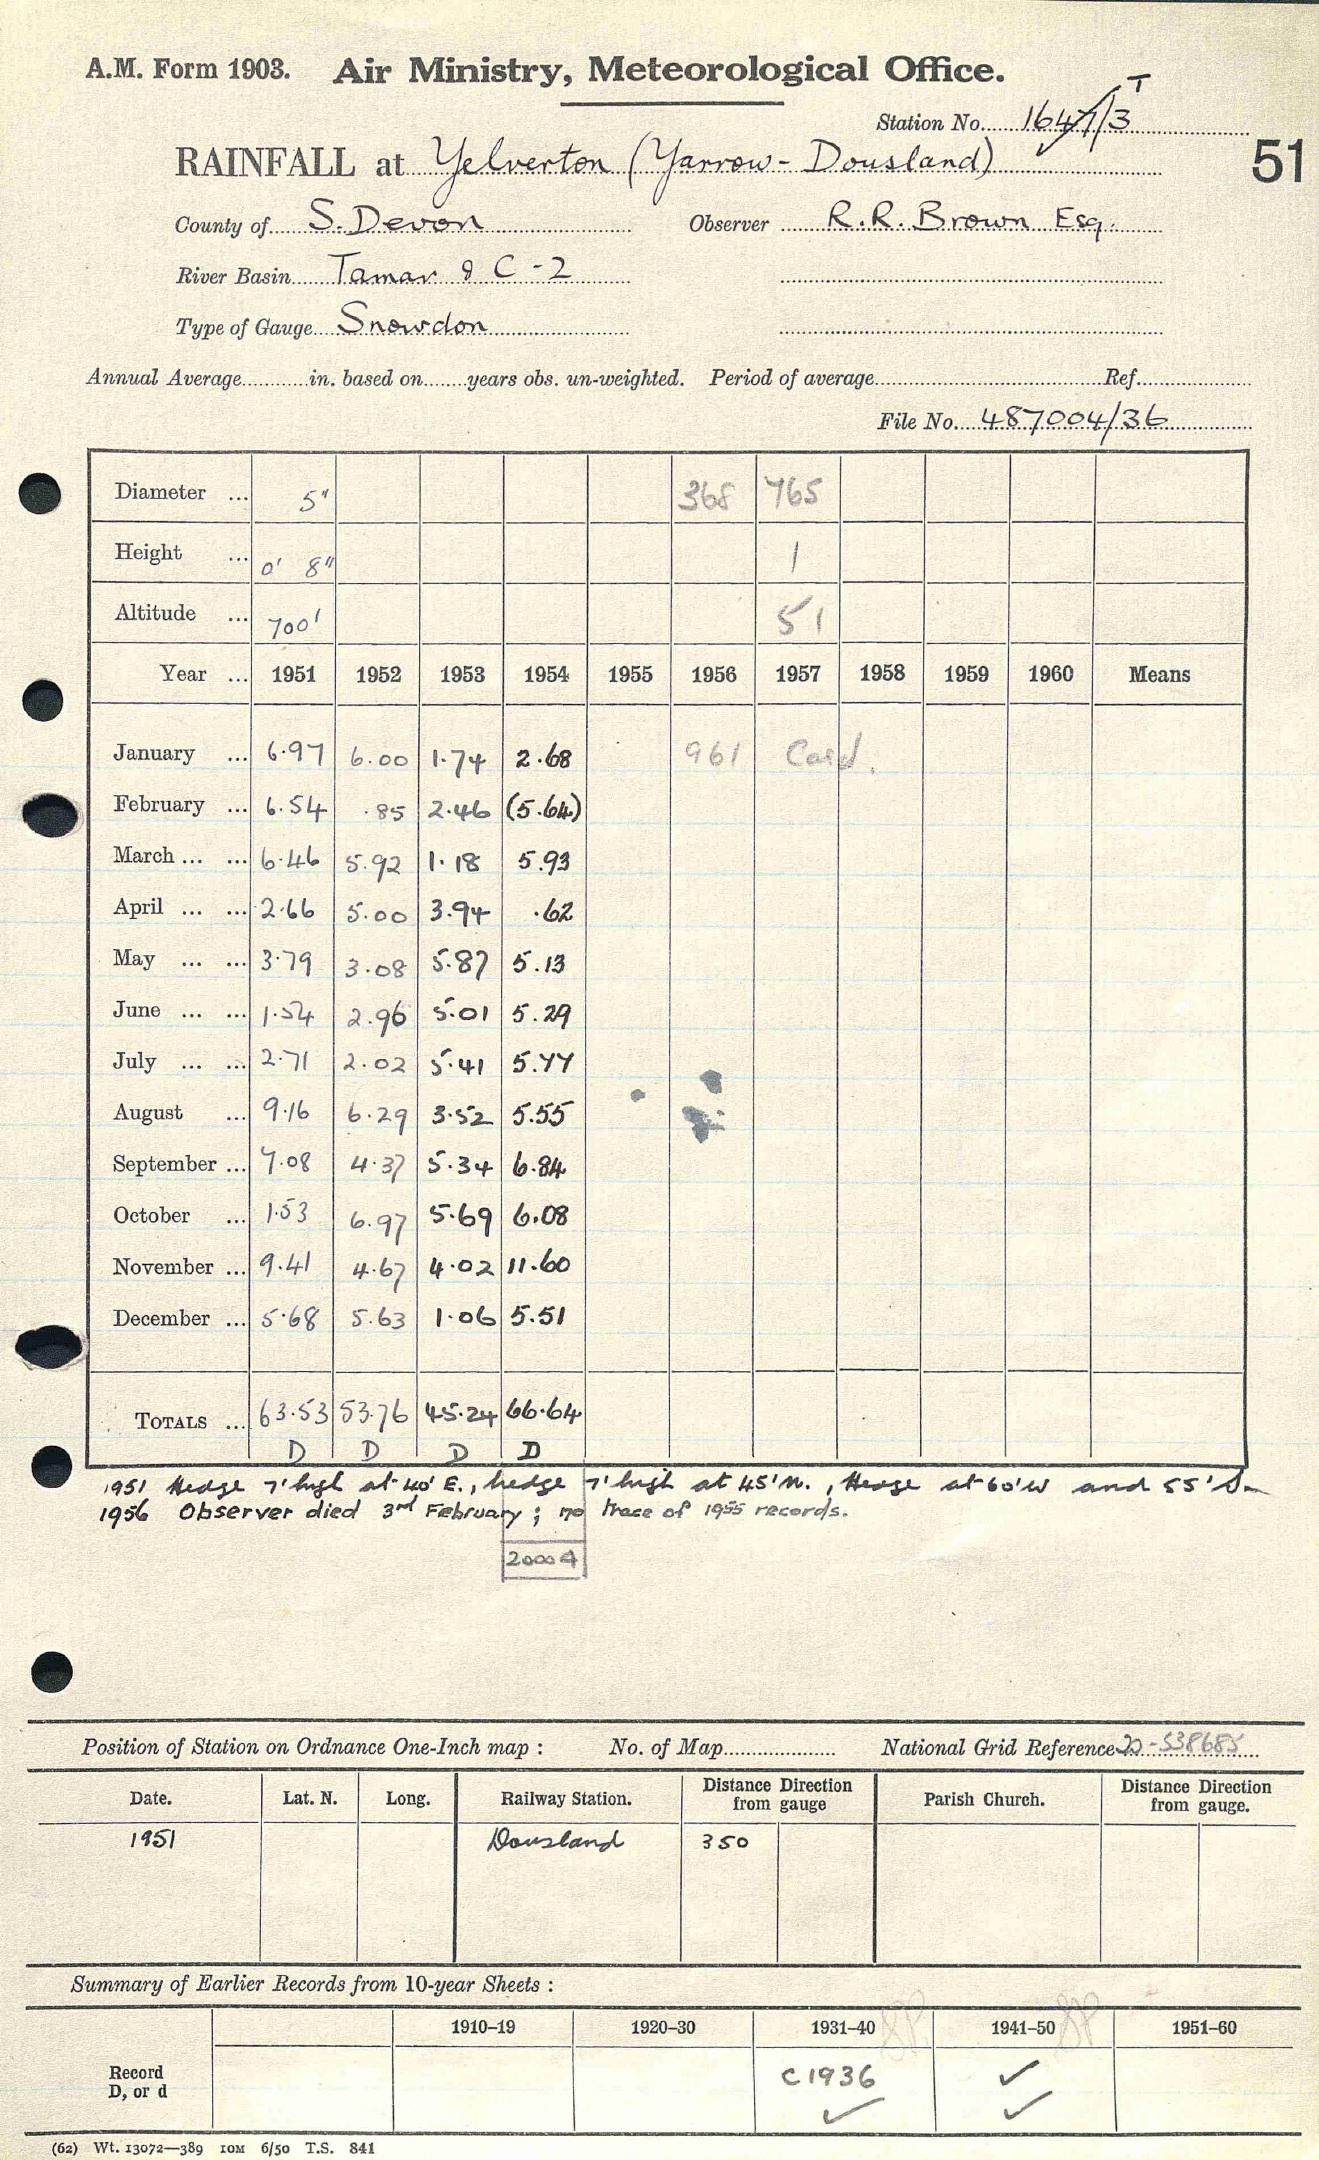 A.M. Form 1903. Air Ministry, Meteorological Office.
Station No. 1647/3 T
RAINFALL at Yelverton (Yarrow - Dousland) 51
County of S. Devon Observer R.R. Brown Esq.
River Basin Tamar & C - 2
Type of Gauge Snowdon
Annual Average in. based on years obs. un-weighted. Period of average Ref.
File No. 487004/36
Diameter ... 5" 368 765
Height ... 0' 8" 1
Altitude ... 700' 51
Year ... 1951 1952 1953 1954 1955 1956 1957 1958 1959 1960 Means
January ... 6.97 6.00 1.74 2.68 961 Card.
February ... 6.54 .85 2.46 (5.64)
March ... ... 6.46 5.92 1.18 5.93
April ... ... 2.66 5.00 3.94 .62
May ... ... 3.79 3.08 5.87 5.13
June ... ... 1.54 2.96 5.01 5.29
July ... ... 2.71 2.02 5.41 5.77
August ... 9.16 6.29 3.52 5.55
September ... 7.08 4.37 5.34 6.84
October ... 1.53 6.97 5.69 6.08
November ... 9.41 4.67 4.02 11.60
December ... 5.68 5.63 1.06 5.51
TOTALS ... 63.53 53.76 45.24 66.64
D D D D
1951 Hedge 7' high at 40' E., hedge 7' high at 45' N., Hedge at 60' W and 55' S.
1956 Observer died 3rd February; no trace of 1955 records.
20004
Position of Station on Ordnance One-Inch map : No. of Map National Grid Reference 20-538685
Date. Lat. N. Long. Railway Station. Distance Direction from gauge Parish Church. Distance Direction from gauge.
1951 Dousland 350
Summary of Earlier Records from 10-year Sheets :
1910-19 1920-30 1931-40 1941-50 1951-60
Record D, or d C1936 ✓ ✓
✓
(62) Wt. 13072—389 10M 6/50 T.S. 841